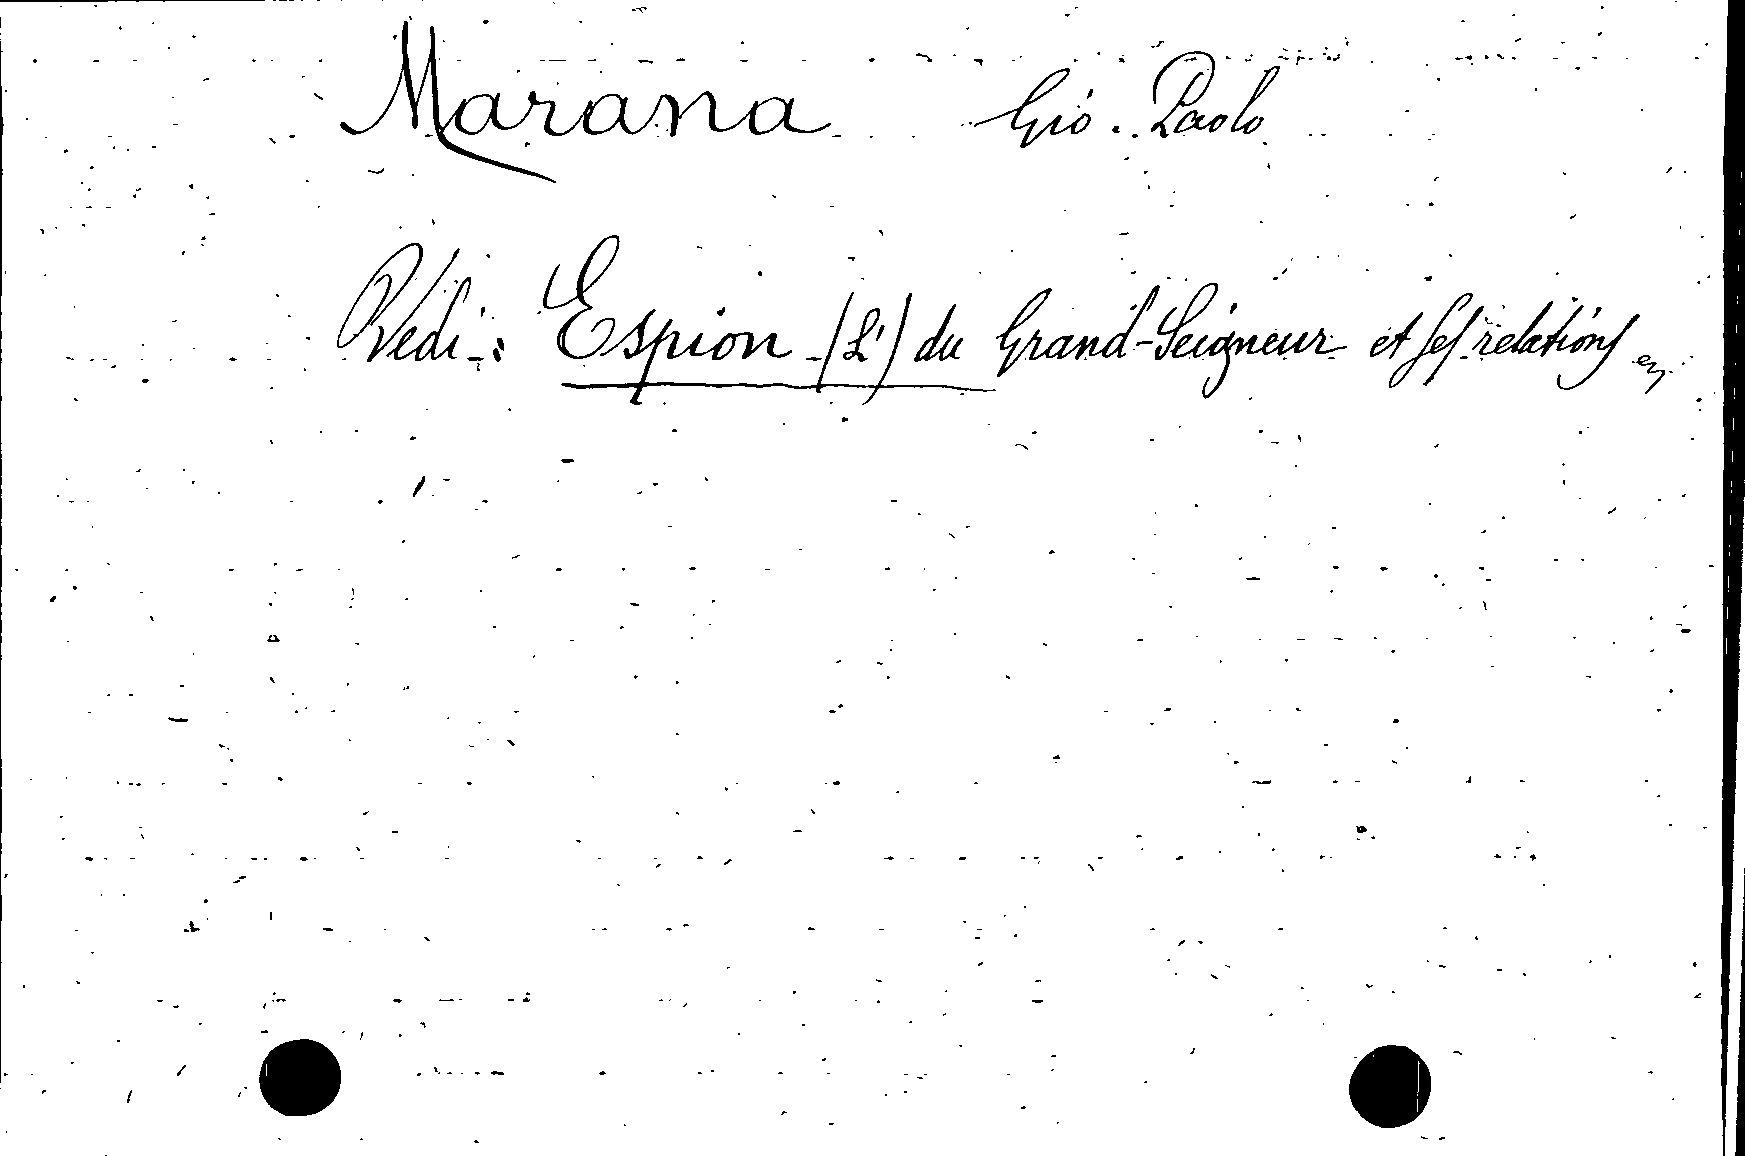 Marana Gio. Paolo
Vedi: Espion (L') du Grand-Seigneur et ses relations en